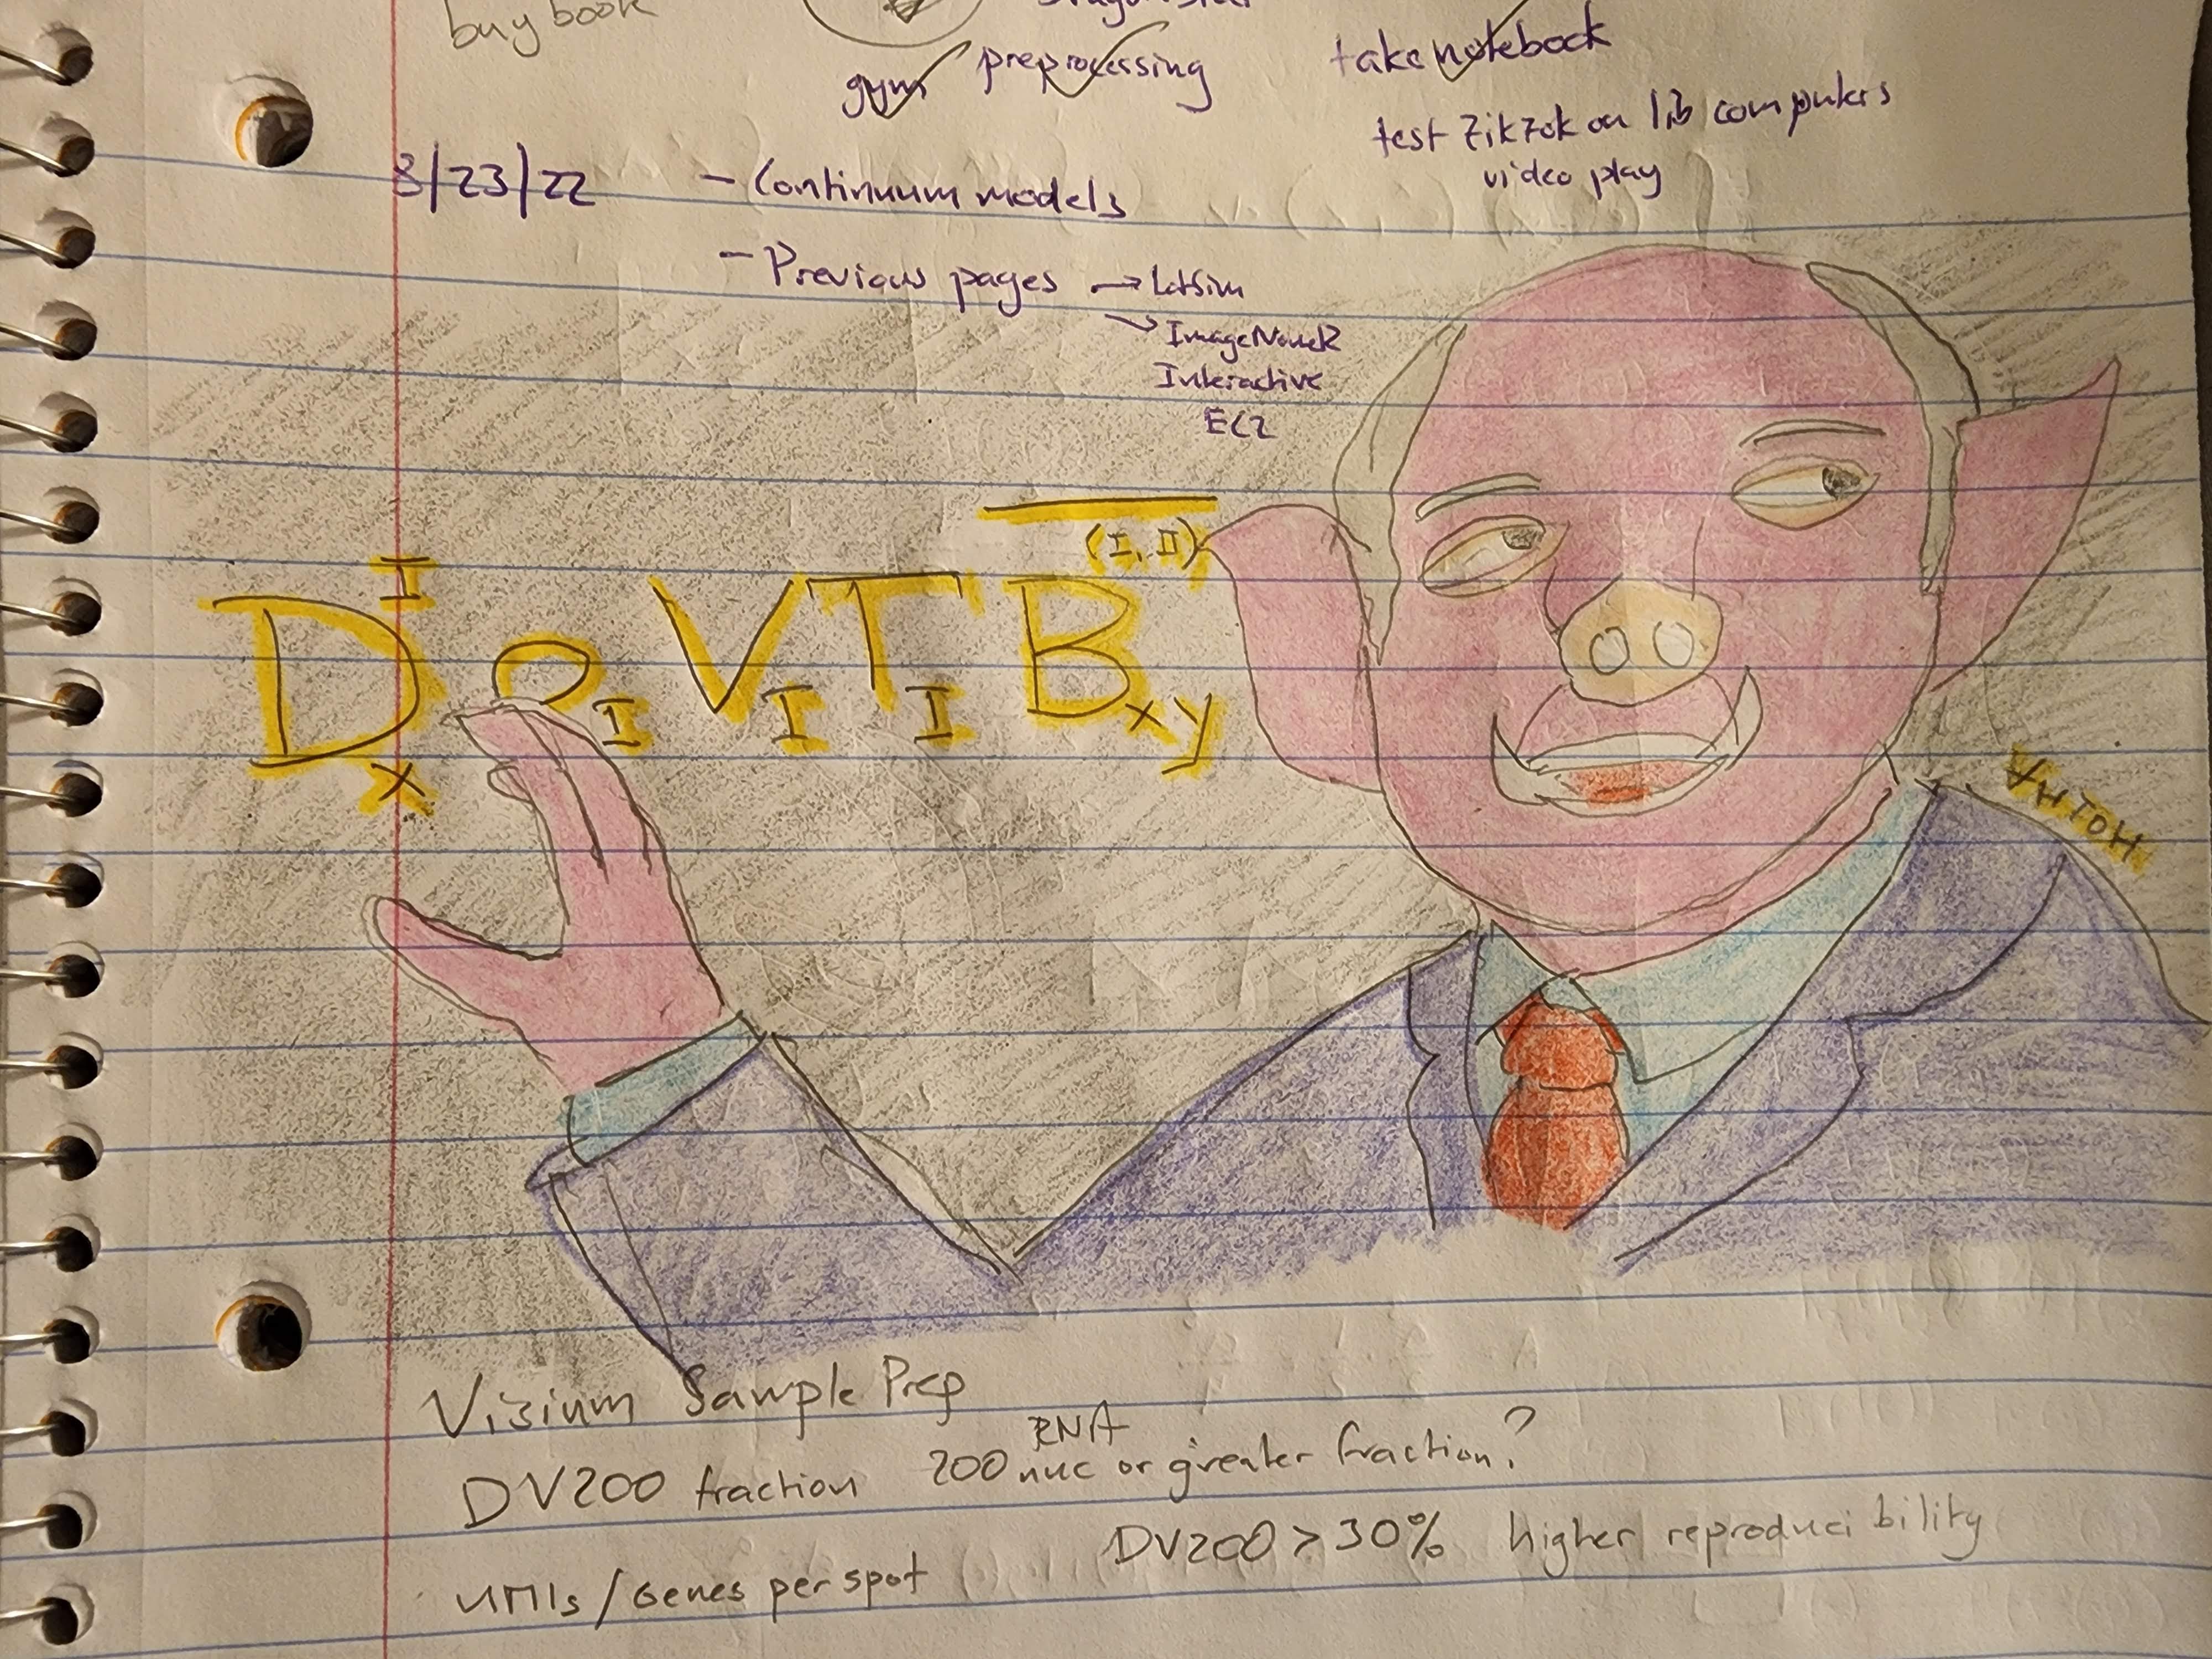 buy book
gym preprocessing
take notebook
test ZikZok on lib computers
video play
8/23/22 - Continuum models
- Previous pages → LatSim
→ ImageNomeR
Interactive
EC2
D I X O I V I T I B (I, II) x y
AHTOH
Visium Sample Prep
DV200 fraction 200 nuc RNA or greater fraction?
DV200 > 30% higher reproducibility
UMIs / Genes per spot